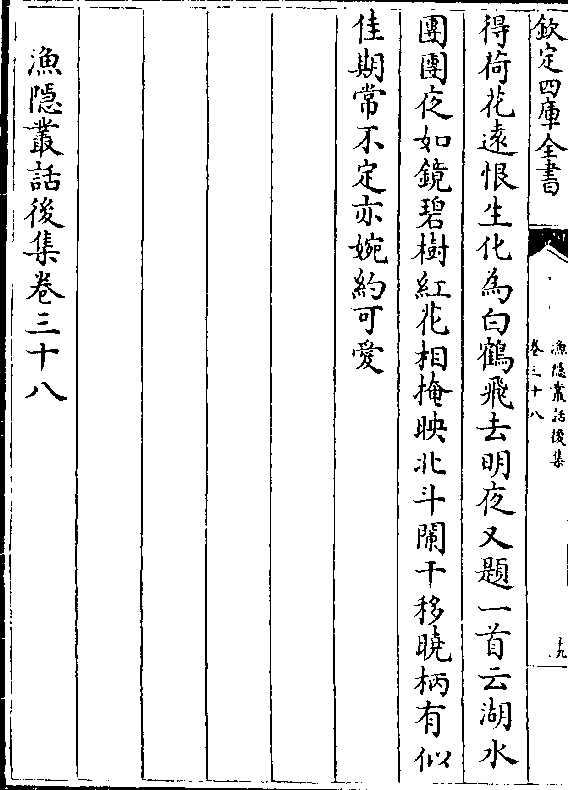 欽定四庫全書
漁隱叢話後集
卷三十八
十九
得荷花遠恨生化為白鶴飛去明夜又題一首云湖水
團團夜如鏡碧樹紅花相掩映北斗闌干移曉柄有似
佳期常不定亦婉約可愛
漁隱叢話後集卷三十八